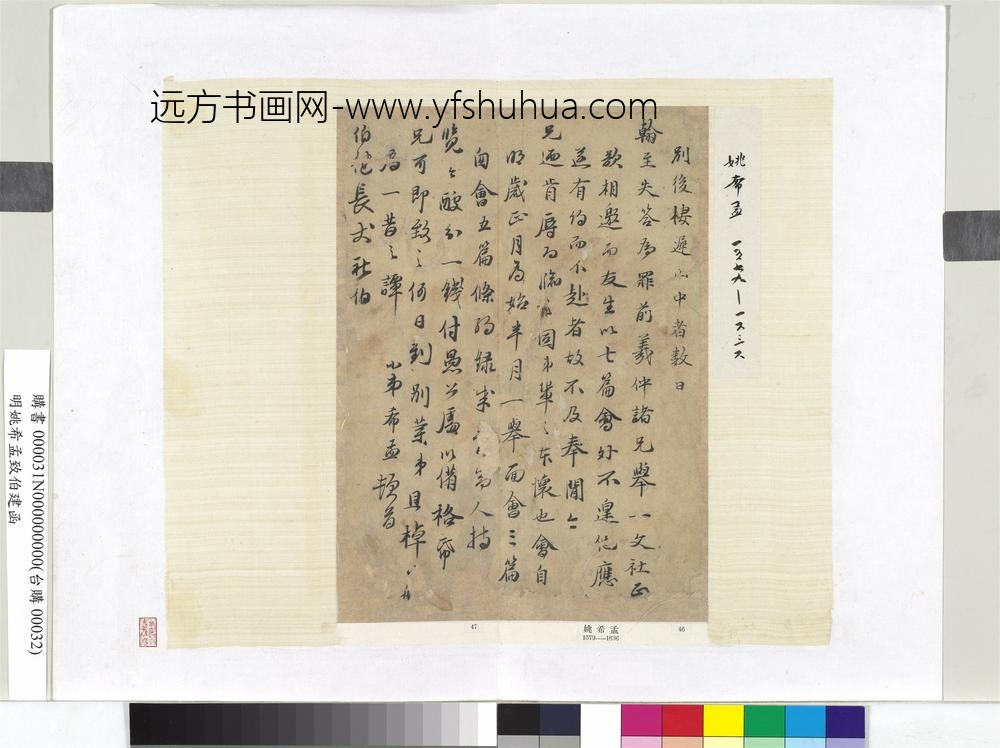 远方书画网-www.yfshuhua.com
姚希孟 一五七九－一六三六
別後棲遲山中者數日
翰至失答為罪前羲仲諸兄舉一文社正
欲相邀而友生以七篇會外不遑他應
遂有約而不赴者故不及奉聞今
兄迺肯辱而臨之同弟輩之本懷也會自
明歲正月為始半月一舉面會三篇
窗會五篇條約錄出人持
覽之醵分一錢付愚公處以備格帋
兄可即致之何日到別業弟且棹
為一昔之譚
小弟希孟頓首
伯建長丈社伯
47
姚希孟
1579—1636
46
購書 000031N000000000(台購 00032)
明姚希孟致伯建函